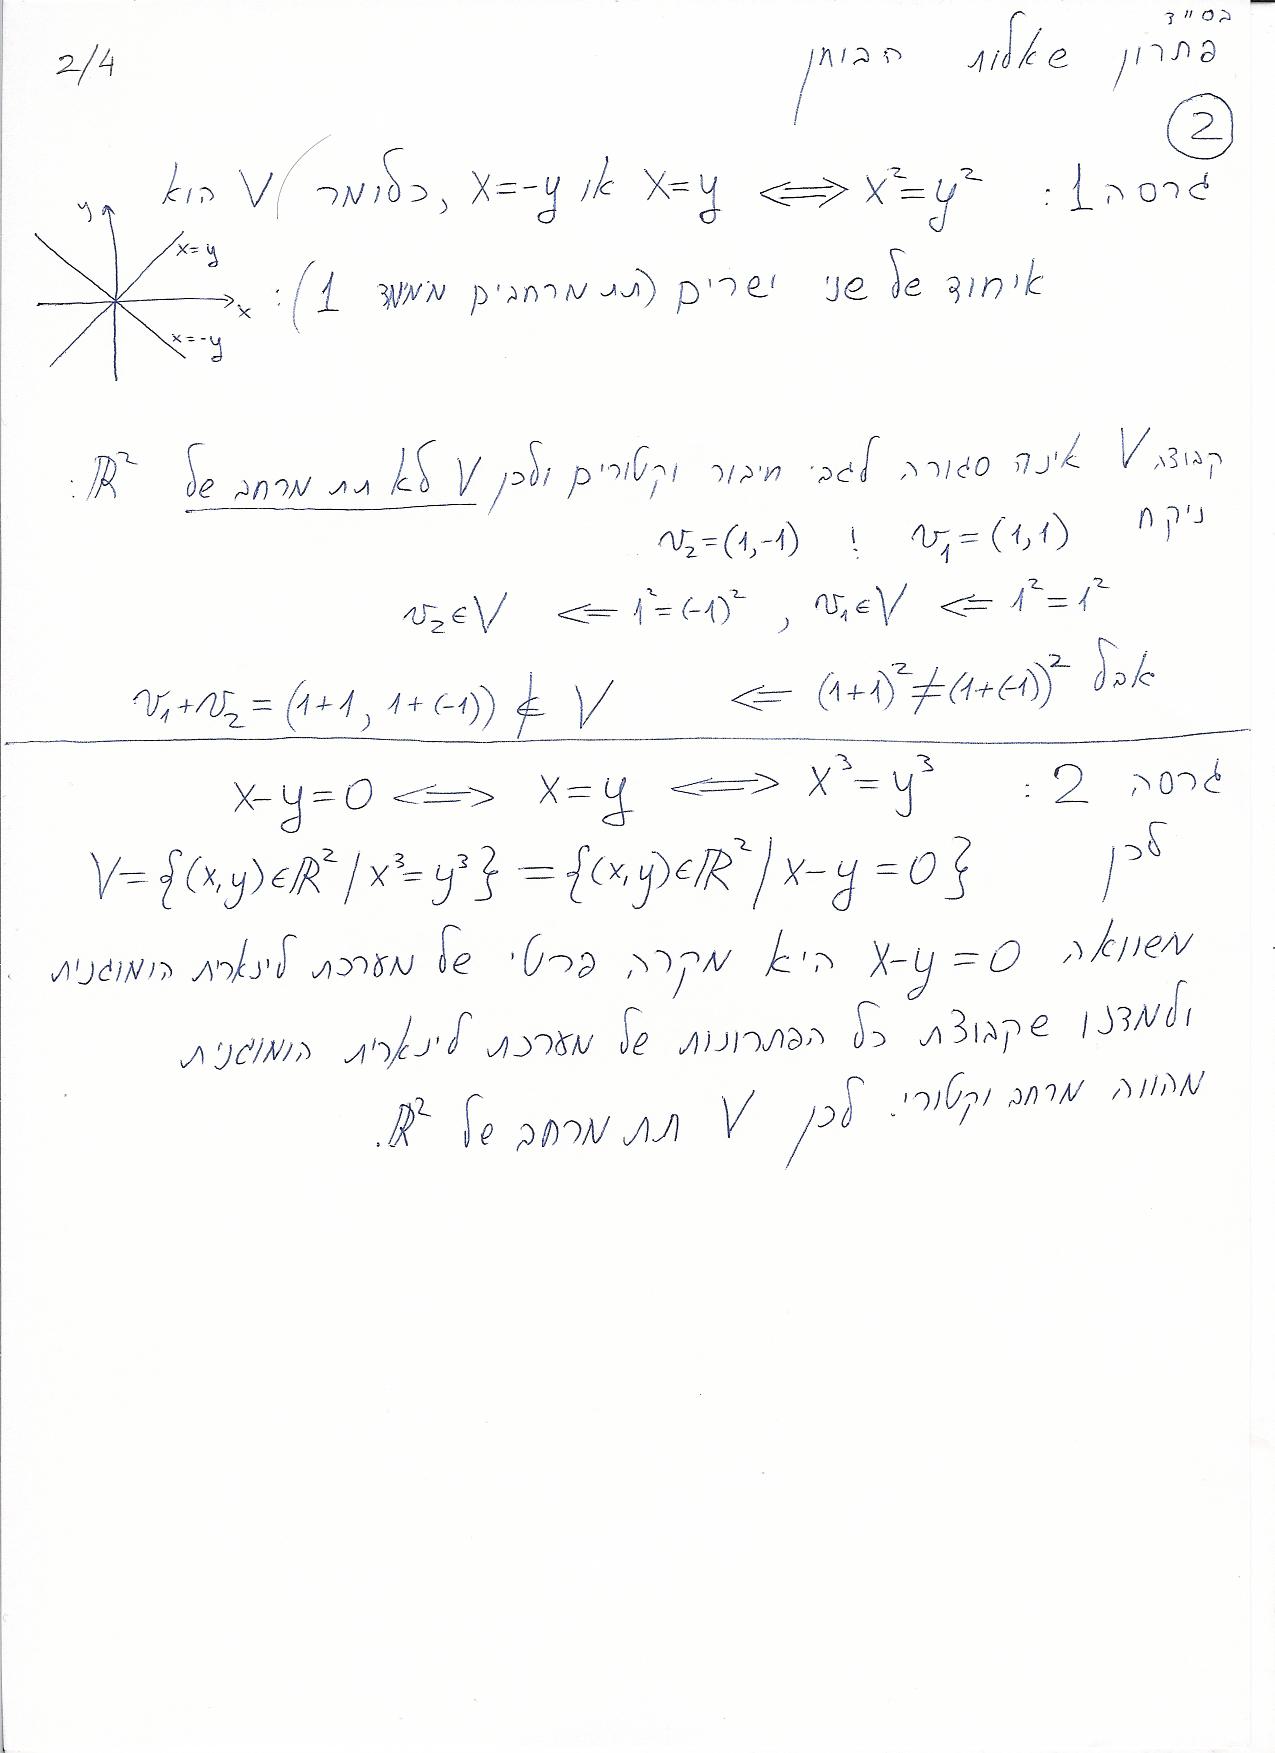 בס"ד
פתרון שאלות הבוחן
2/4
2
גרסה 1: x²=y² ⟺ x=y או x=-y, כלומר (V הוא
איחוד של שני ישרים (תת מרחבים ממימד 1)):
y
x=y
x
x=-y
קבוצה V אינה סגורה לגבי חיבור וקטורים ולכן V לא תת מרחב של ℝ²:
ניקח v₁=(1,1) ! v₂=(1,-1)
1²=1² ⇐ v₁∈V, 1²=(-1)² ⇐ v₂∈V
אבל (1+1)²≠(1+(-1))² ⇐ v₁+v₂=(1+1, 1+(-1)) ∉ V
גרסה 2: x³=y³ ⟺ x=y ⟺ x-y=0
לכן V={(x,y)∈ℝ²/x³=y³}={(x,y)∈ℝ²/x-y=0}
משוואה x-y=0 היא מקרה פרטי של מערכת לינארית הומוגנית
ולמדנו שקבוצת כל הפתרונות של מערכת לינארית הומוגנית
מהווה מרחב וקטורי. לכן V תת מרחב של ℝ².